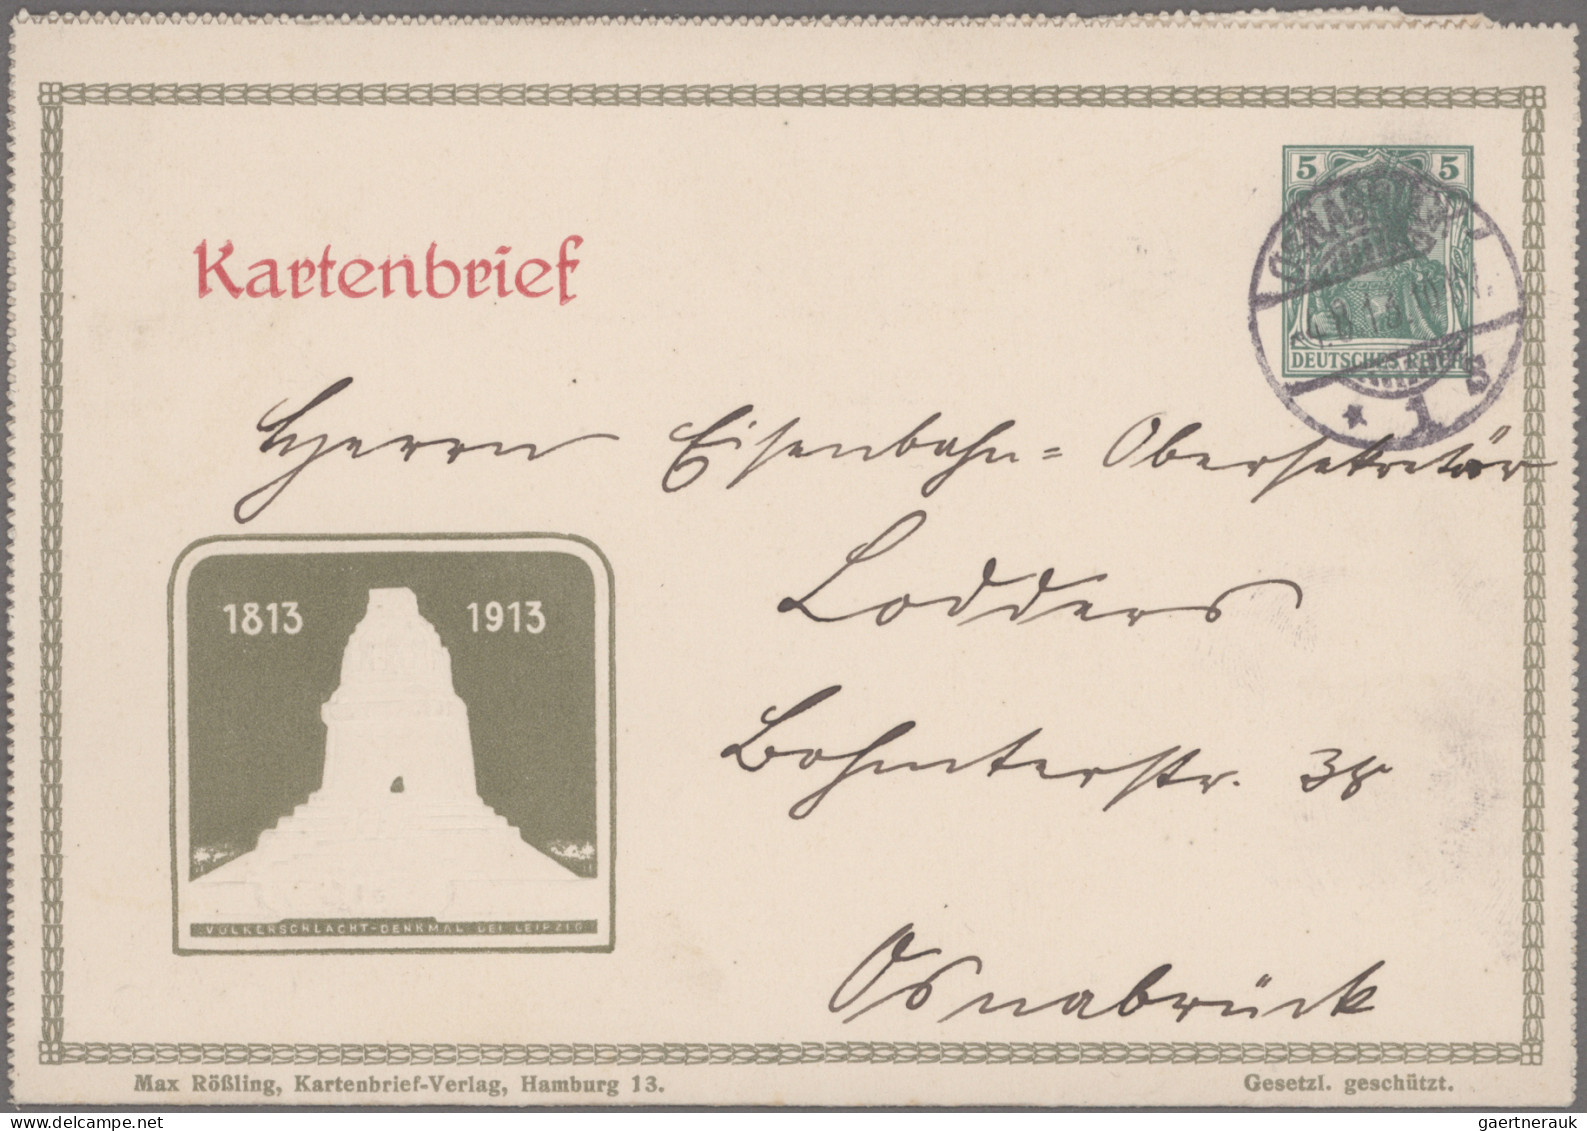 5 5
DEUTSCHES REICH
OSNABRÜCK
* 1 s
Kartenbrief
Herrn Eisenbahn=Obersekretär
Lodders
Bohmterstr. 38
Osnabrück
1813 1913
VÖLKERSCHLACHT-DENKMAL BEI LEIPZIG
Max Rößling, Kartenbrief-Verlag, Hamburg 13.
Gesetzl. geschützt.
gaertnerauk